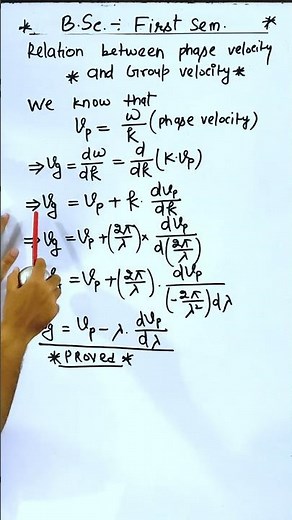 * B.Sc. ÷ First Sem. *
Relation between phase velocity
* and Group velocity *
We know that
Vp = ω/k (phase velocity)
⇒ Vg = dω/dk = d/dk (k·Vp)
⇒ Vg = Vp + k · dVp/dk
⇒ Vg = Vp + (2π/λ) × dVp/d(2π/λ)
= Vp + (2π/λ) · dVp/(-2π/λ²)dλ
g = Vp - λ · dVp/dλ
* PROVED *